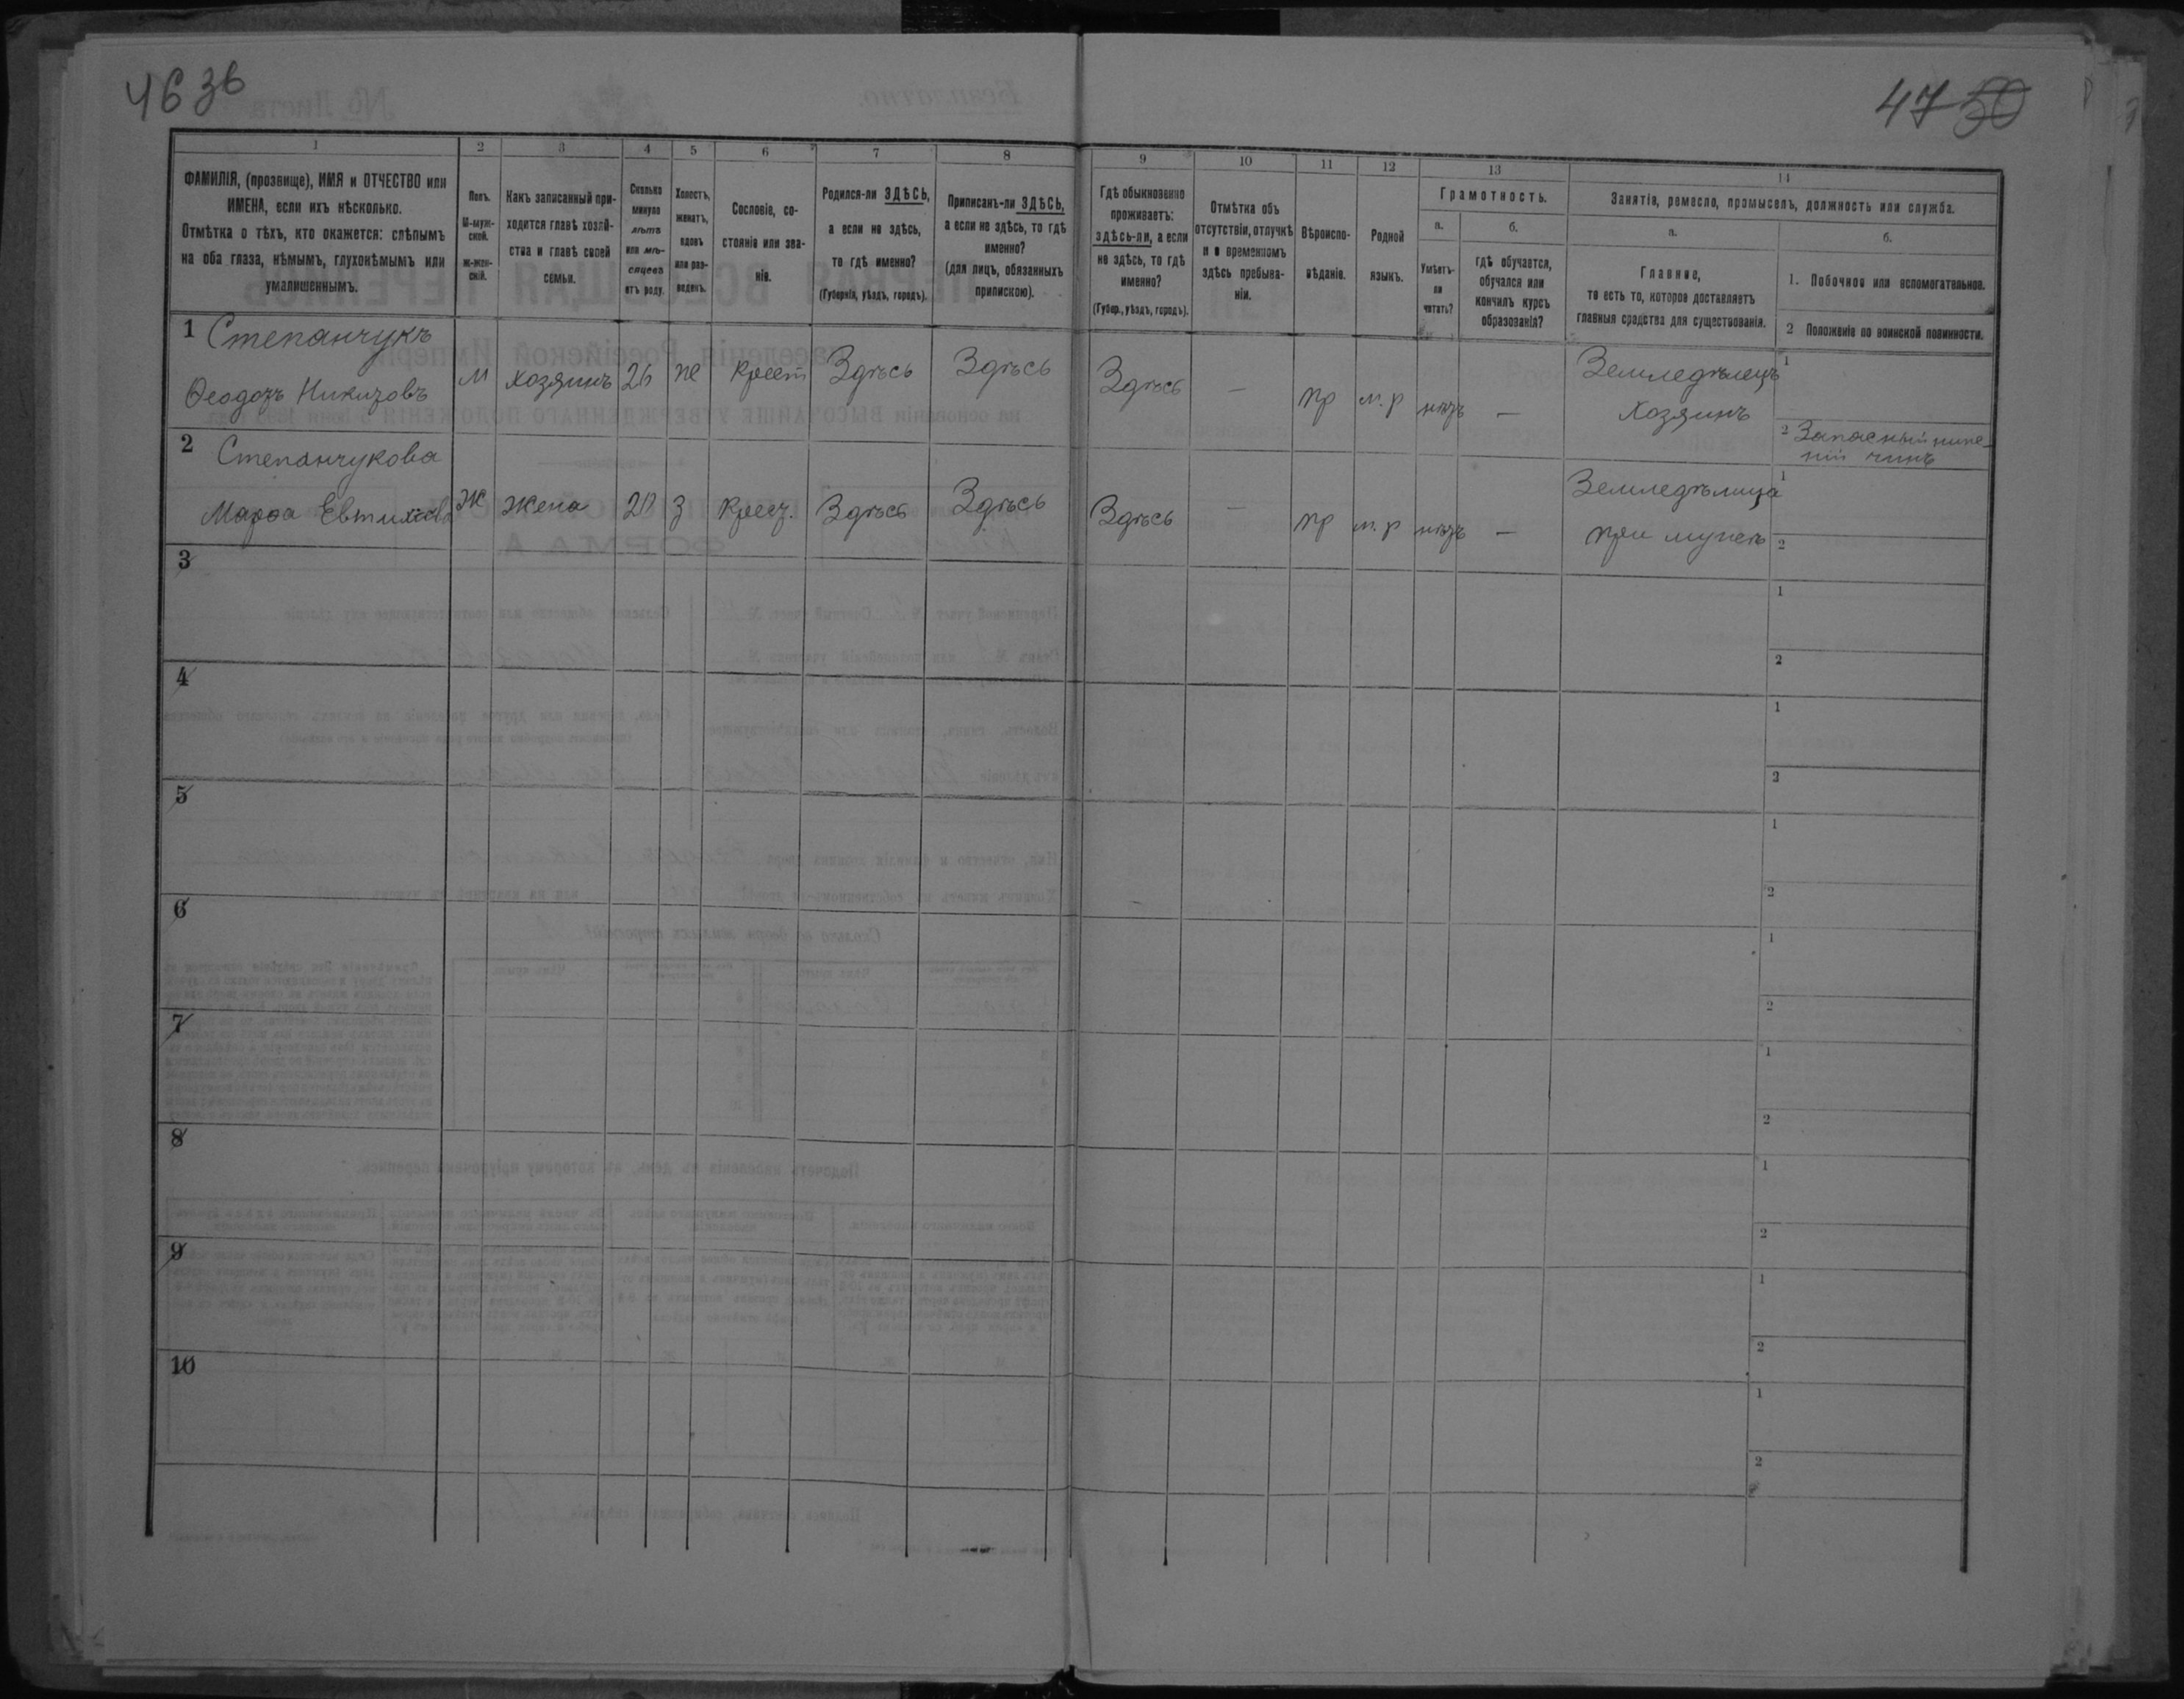 4636
47 50
1
2
3
4
5
6
7
8
9
10
11
12
13
14
ФАМИЛІЯ, (прозвище), ИМЯ и ОТЧЕСТВО или
ИМЕНА, если ихъ нѣсколько.
Отмѣтка о тѣхъ, кто окажется: слѣпымъ
на оба глаза, нѣмымъ, глухонѣмымъ или
умалишеннымъ.
Полъ.
М-муж-
ской.
ж-жен-
скій.
Какъ записанный при-
ходится главѣ хозяй-
ства и главѣ своей
семьи.
Сколько
минуло
лѣтъ
или мѣ-
сяцевъ
отъ роду.
Холостъ,
женатъ,
вдовъ
или раз-
веденъ.
Сословіе, со-
стояніе или зва-
ніе.
Родился-ли ЗДѢСЬ,
а если не здѣсь,
то гдѣ именно?
(Губернія, уѣздъ, городъ).
Приписанъ-ли ЗДѢСЬ,
а если не здѣсь, то гдѣ
именно?
(для лицъ, обязанныхъ
припискою).
Гдѣ обыкновенно
проживаетъ:
ЗДѢСЬ-ЛИ, а если
не здѣсь, то гдѣ
именно?
(Губер., уѣздъ, городъ).
Отмѣтка объ
отсутствіи, отлучкѣ
и о временномъ
здѣсь пребыва-
ніи.
Вѣроиспо-
вѣданіе.
Родной
языкъ.
Грамотность.
а.
Умѣетъ-
ли
читать?
б.
гдѣ обучается,
обучался или
кончилъ курсъ
образованія?
Занятіе, ремесло, промыселъ, должность или служба.
а.
Главное,
то есть то, которое доставляетъ
главныя средства для существованія.
б.
1. Побочное или вспомогательное.
2 Положеніе по воинской повинности.
1 Степанчукъ
Ѳеодоръ Никитовъ м хозяинъ 26 ж крест Здѣсь Здѣсь Здѣсь — пр м.р нѣтъ —
Земледѣлецъ
хозяинъ
1
2 Запасный ниж-
ній чинъ
2 Степанчукова
Марѳа Евтихіева Ж Жена 20 З крест. Здѣсь Здѣсь Здѣсь — пр м.р нѣтъ —
Земледѣлица
при мужѣ
1
2
3
1
2
4
1
2
5
1
2
6
1
2
7
1
2
8
1
2
9
1
2
10
1
2